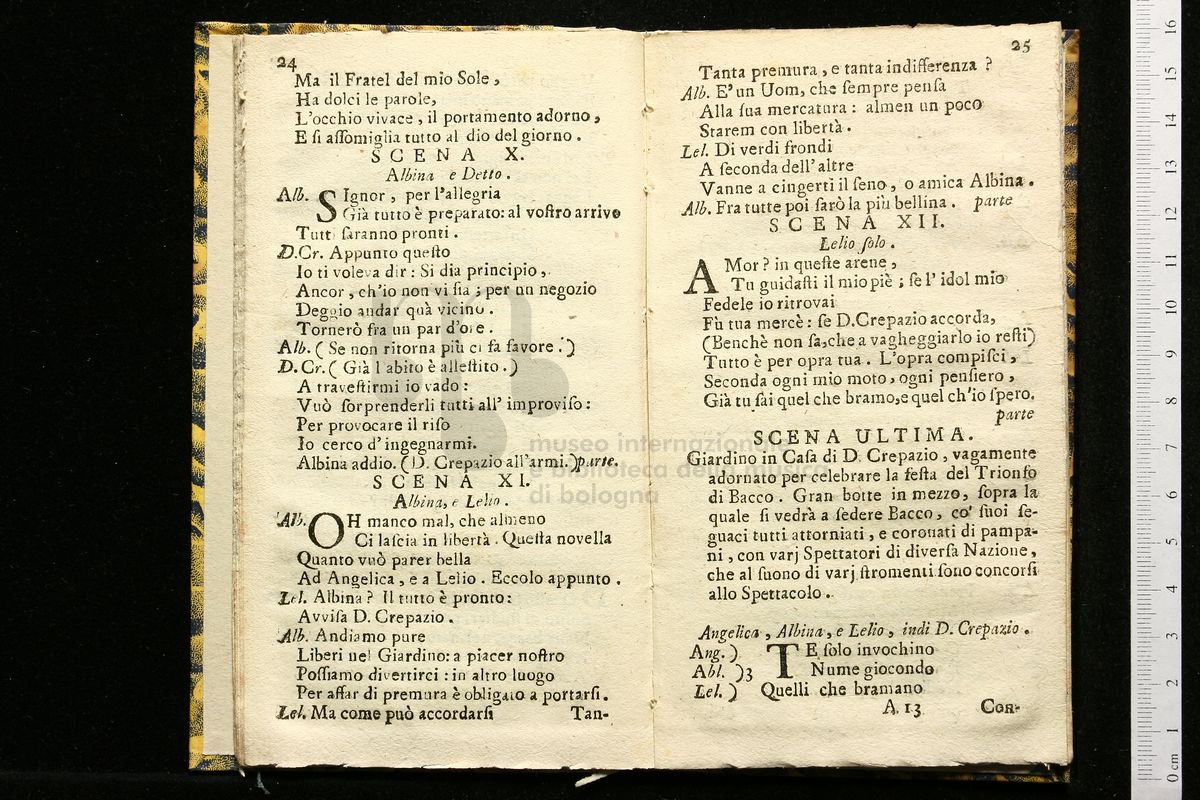 24
Ma il Fratel del mio Sole,
Ha dolci le parole,
L'occhio vivace, il portamento adorno,
E si aſſomiglia tutto al dio del giorno.
SCENA X.
Albina e Detto.
Alb. SIgnor, per l'allegria
Già tutto è preparato: al voſtro arrivo
Tutti ſaranno pronti.
D.Cr. Appunto queſto
Io ti voleva dir: Si dia principio,
Ancor, ch'io non vi ſia; per un negozio
Deggio andar quà vicino.
Tornerò fra un par d'ore.
Alb. (Se non ritorna più ci fa favore.)
D.Cr. (Già l'abito è alleſtito.)
A traveſtirmi io vado:
Vuò ſorprenderli tutti all' improviſo:
Per provocare il riſo
Io cerco d'ingegnarmi.
Albina addio. (D. Crepazio all'armi.) parte.
SCENA XI.
Albina, e Lelio.
Alb. OH manco mal, che almeno
Ci laſcia in libertà. Queſta novella
Quanto vuò parer bella
Ad Angelica, e a Lelio. Eccolo appunto.
Lel. Albina? Il tutto è pronto:
Avviſa D. Crepazio.
Alb. Andiamo pure
Liberi nel Giardino: a piacer noſtro
Poſſiamo divertirci: in altro luogo
Per affar di premura è obligato a portarſi.
Lel. Ma come può accordarſi
Tan-
25
Tanta premura, e tanta indifferenza?
Alb. E' un Uom, che ſempre penſa
Alla ſua mercatura: almen un poco
Starem con libertà.
Lel. Di verdi frondi
A ſeconda dell'altre
Vanne a cingerti il ſeno, o amica Albina.
Alb. Fra tutte poi ſarò la più bellina. parte
SCENA XII.
Lelio ſolo.
AMor? in queſte arene,
Tu guidaſti il mio piè; ſe l' idol mio
Fedele io ritrovai
Fù tua mercè: ſe D.Crepazio accorda,
(Benchè non ſa, che a vagheggiarlo io reſti)
Tutto è per opra tua. L'opra compiſci,
Seconda ogni mio moto, ogni penſiero,
Già tu ſai quel che bramo, e quel ch'io ſpero.
parte
SCENA ULTIMA.
Giardino in Caſa di D. Crepazio, vagamente
adornato per celebrare la feſta del Trionfo
di Bacco. Gran botte in mezzo, ſopra la
quale ſi vedrà a ſedere Bacco, co' ſuoi ſe-
guaci tutti attorniati, e coronati di pampa-
ni, con varj Spettatori di diverſa Nazione,
che al ſuono di varj ſtromenti ſono concorſi
allo Spettacolo.
Angelica, Albina, e Lelio, indi D. Crepazio.
Ang. ) TE ſolo invochino
Abl. )3 Nume giocondo
Lel. ) Quelli che bramano
A 13
Con-
museo internazionale
e biblioteca della musica
di bologna
0 cm 1 2 3 4 5 6 7 8 9 10 11 12 13 14 15 16